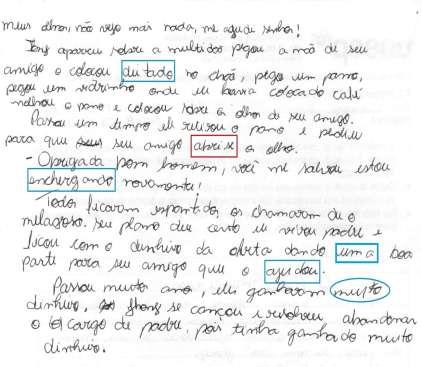 meus olhos, não vejo mais nada, me ajude senhor!
Jens apareceu sobre a multidão pegou a mão de seu
amigo o colocou dutado no chão, pegou um pano,
pegou um vidrinho onde ele havia colocado café
melhou o pano e colocou sobre o olho de seu amigo.
Passou um tempo ele retirou o pano e pediu
para que seu seu amigo abrise o olho.
- Obrigada bom homem, você me salvou estou
enchergando novamente!
Todos ficaram espantados, os chamaram de o
milagroso. seu plano deu certo ele virou padre e
ficou com o dinheiro da oferta dando uma boa
parte para seu amigo que o ajudou.
Passou muito ano, eles ganharam muito
dinheiro, Jhens se cançou e resolveu abandonar
o cargo de padre, pois tinha ganhado muito
dinheiro.